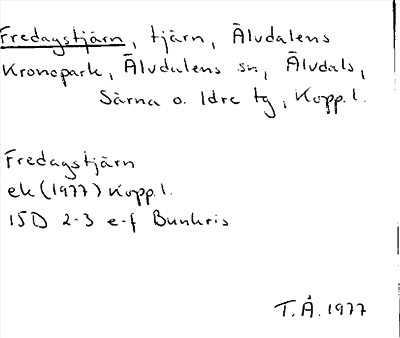 Fredagstjärn, tjärn, Älvdalens
Kronopark, Älvdalens sn, Älvdals,
Särna o. Idre tg, Kopp.l.
Fredagstjärn
ek (1977) Kopp.l.
15D 2-3 e-f Bunkris
T.Å. 1977